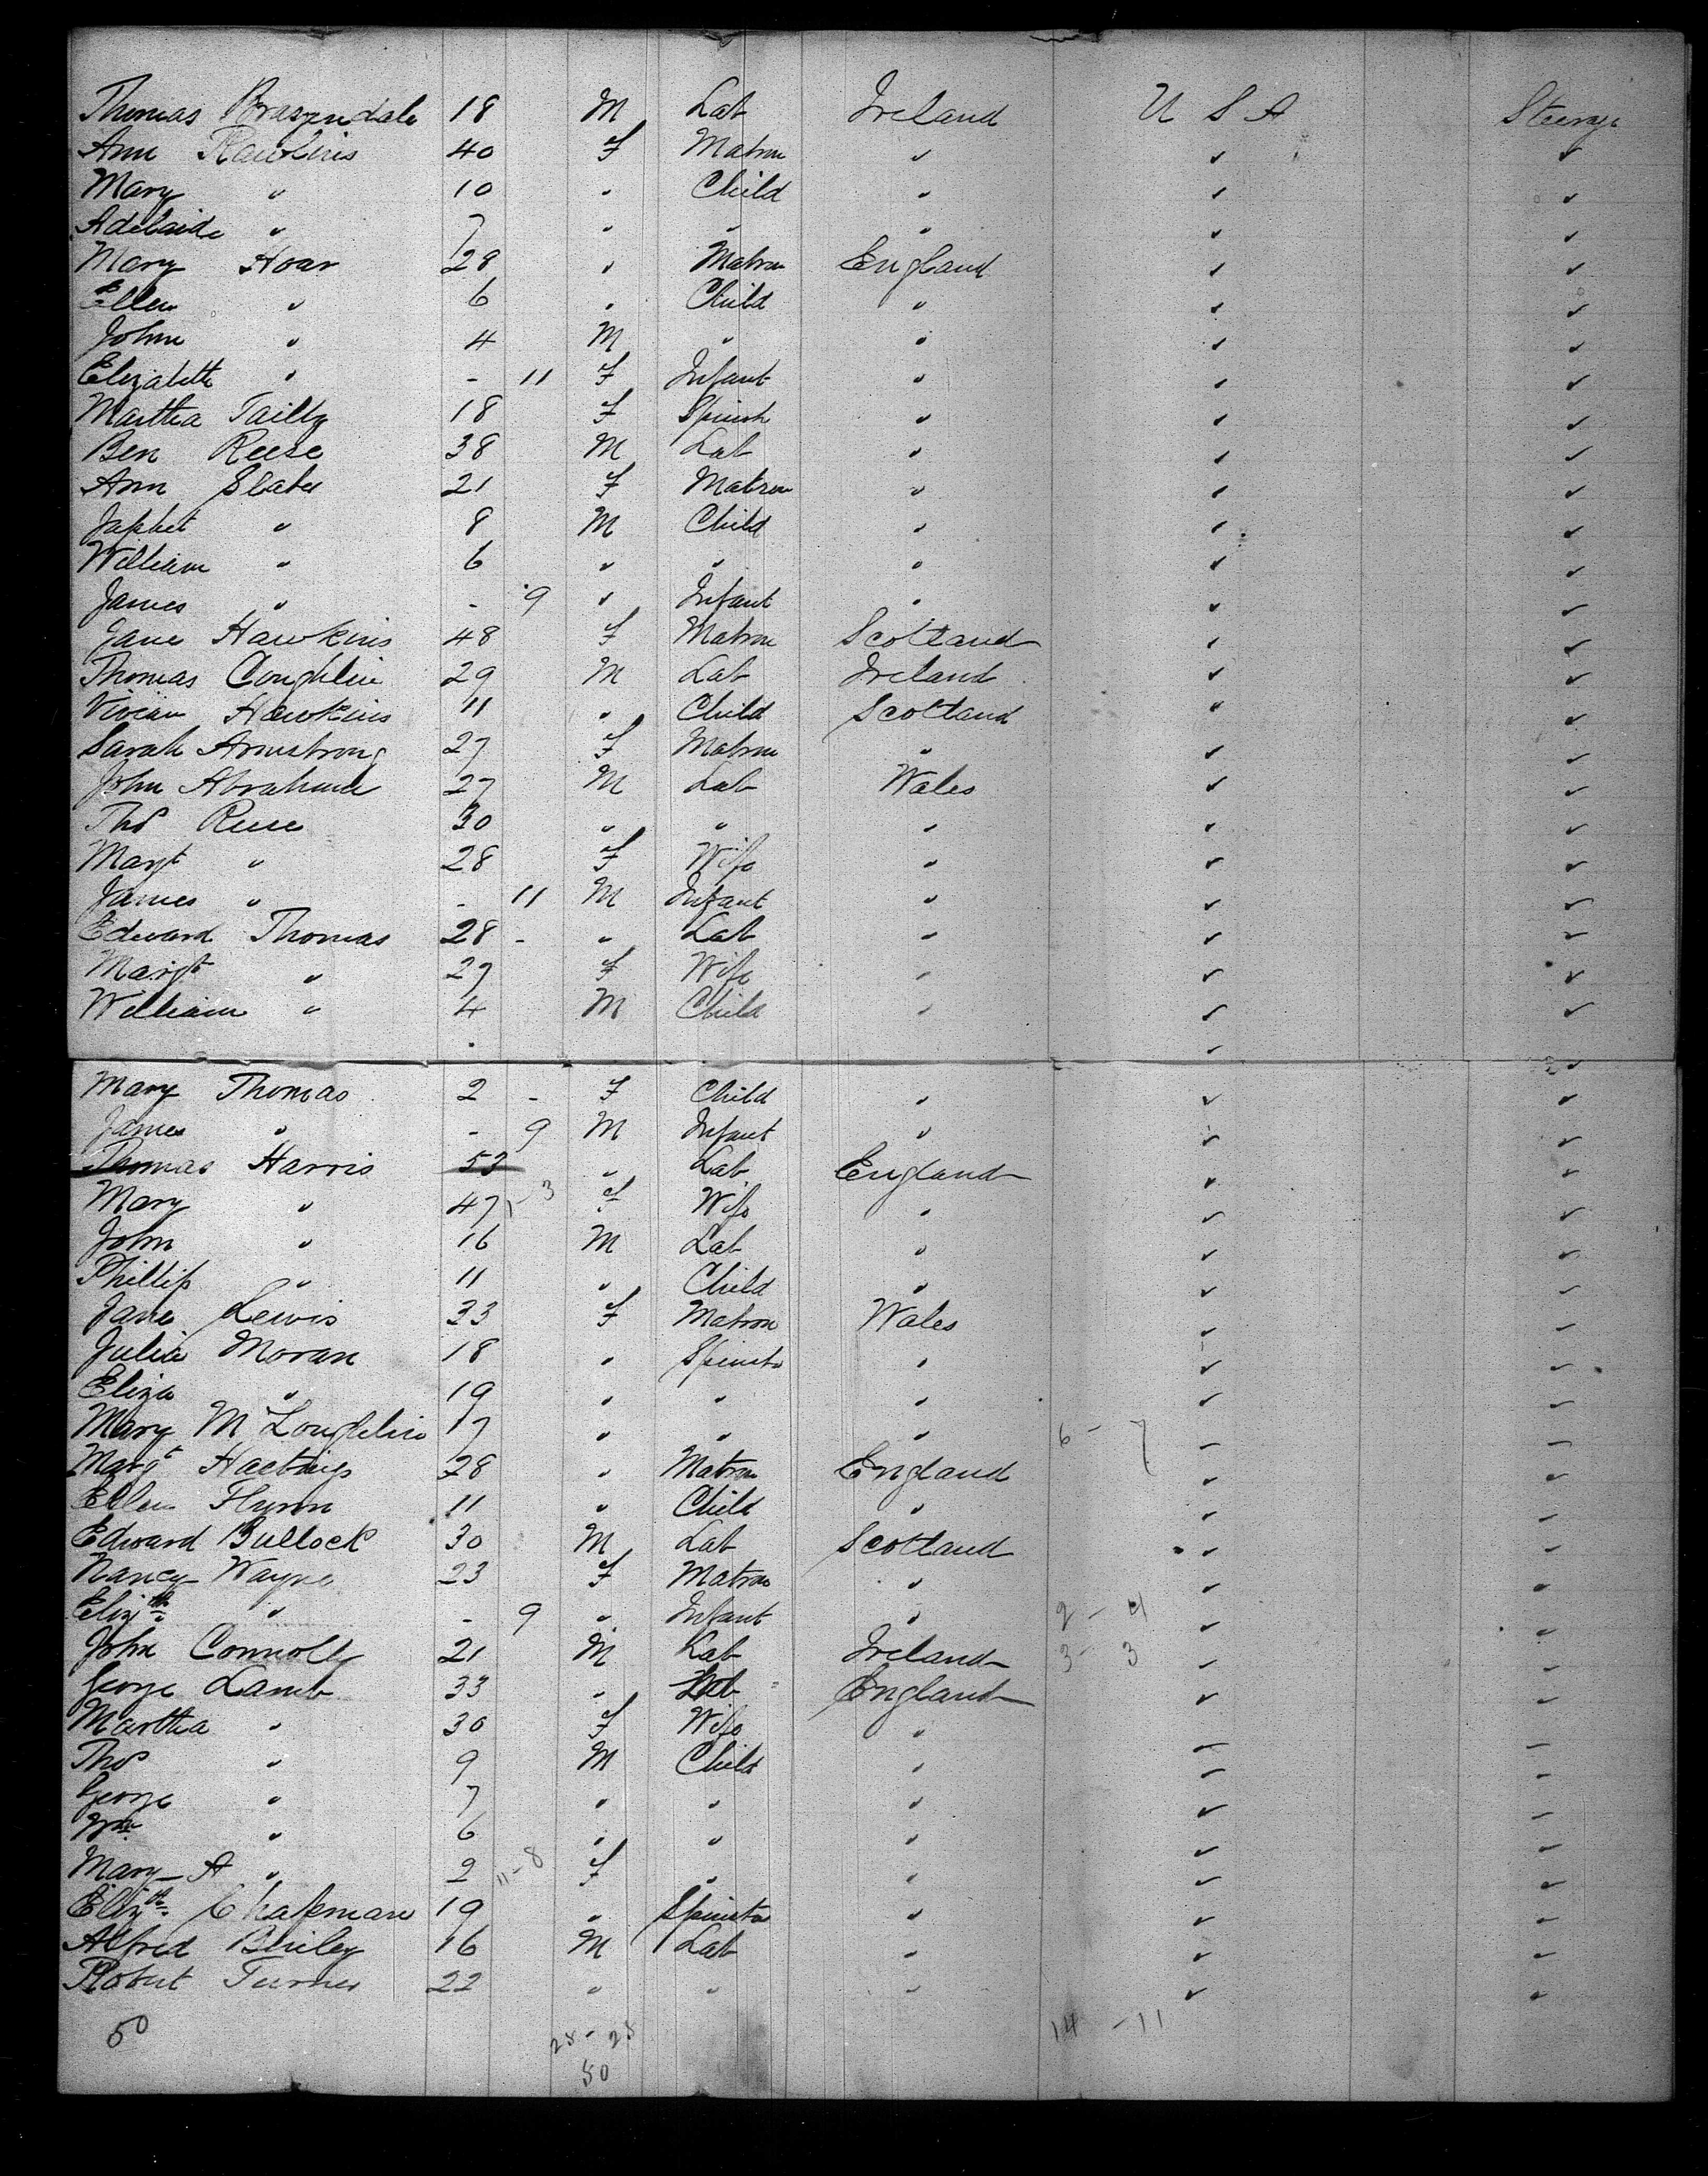 Thomas Brazendale 18 M Lab Ireland U S A Steerage
Ann Rawkins 40 F Matron " " "
Mary " 10 " Child " " "
Adelaide " 7 " " " " "
Mary Hoar 28 " Matron England " "
Ellen " 6 " Child " " "
John " 4 M " " " "
Elizabeth " - 11 F Infant " " "
Martha Tailby 18 F Spinstr " " "
Ben Reese 38 M Lab " " "
Ann Slater 21 F Matron " " "
Japhet " 8 M Child " " "
William " 6 " " " " "
James " - 9 " Infant " " "
Jane Hawkins 48 F Matron Scotland " "
Thomas Coughlin 29 M Lab Ireland " "
Vivian Hawkins 11 " Child Scotland " "
Sarah Armstrong 27 F Matron " " "
John Abraham 27 M Lab Wales " "
Thos 30 " " " " "
Margt " 28 F Wife " " "
James " - 11 M Infant " " "
Edward Thomas 28 - " Lab " " "
Margt " 27 F Wife " " "
William " 4 M Child " " "
Mary Thomas 2 - F Child " " "
James " - 9 M Infant " " "
Thomas Harris 53 " Lab England " "
Mary " 47 1-3 F Wife " " "
John " 16 M Lab " " "
Phillip " 11 " Child " " "
Jane Lewis 33 F Matron Wales " "
Julia Moran 18 " Spinstr " " "
Eliza " 19 " " " " "
Mary McLoughlin 17 " " " 6 - 7 " "
Margt Hastings 28 " Matron England " "
Ellen Flynn 11 " Child " " "
Edward Bullock 30 M Lab Scotland " "
Nancy Wayne 23 F Matron " " "
Elizth " - 9 " Infant " 2 - 4 " "
John Connolly 21 M Lab Ireland 3 - 3 " "
George Lamb 33 " Lab England " "
Martha " 30 F Wife " " "
Thos " 9 M Child " " "
George " 7 " " " " "
Wm " 6 " " " " "
Mary A " 2 11-8 F " " " "
Elizth Chapman 19 " Spinster " " "
Alfred 16 M Lab " " "
Robert Turner 22 " " " " "
50 25 - 25 14 - 11
50